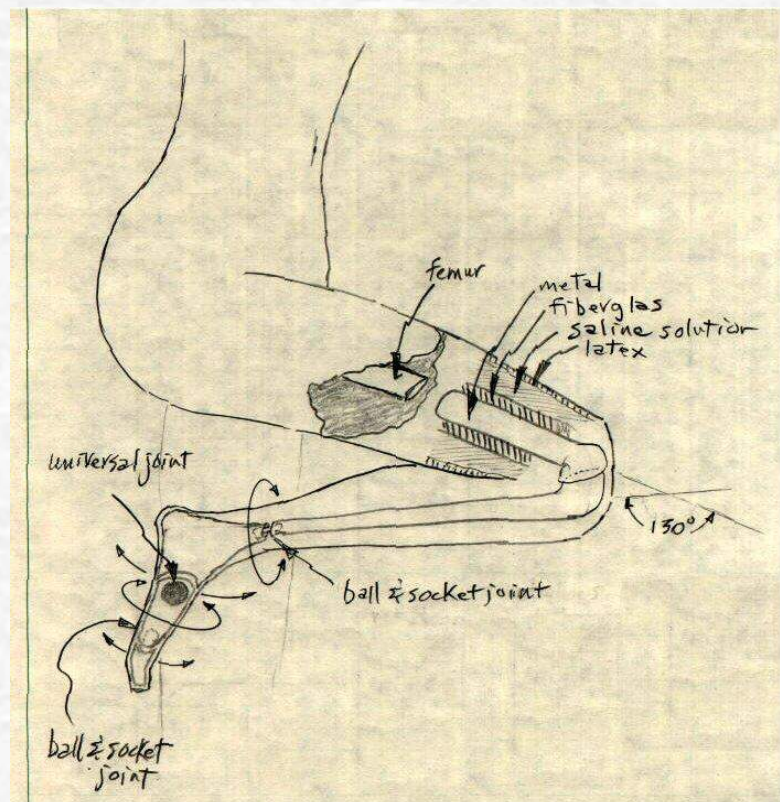 femur
metal
fiberglas
saline solution
latex
universal joint
130°
ball & socket joint
ball & socket
joint